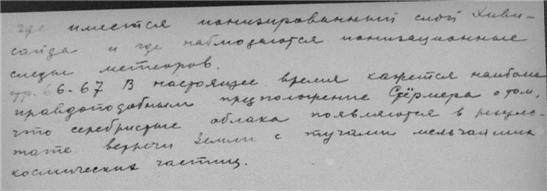 где имеется ионизированный слой Хиви-
сайда и где наблюдаются ионизационные
следы метеоров.
стр. 66-67 В настоящее время кажется наиболее
правдоподобным предположение Стёрмера о том,
что серебристые облака появляются в резуль-
тате встречи Земли с тучами мельчайших
космических частиц.